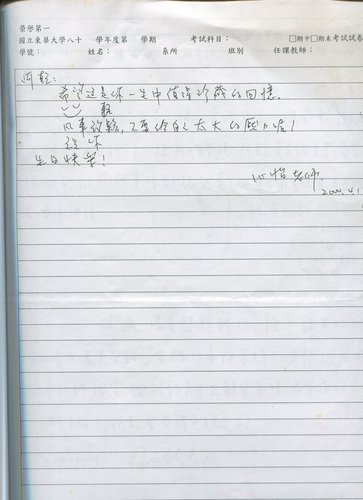 榮學第一
國立東華大學八十 學年度第 學期 考試科目： □期中□期末考試試卷
學號： 姓名： 系所 班別 任課教師：
希望這是你一生中值得珍藏的回憶.
凡事放鬆，不要給自己太大的壓力喔！
祝你
生日快樂！
心怡老師.
2000.4.1